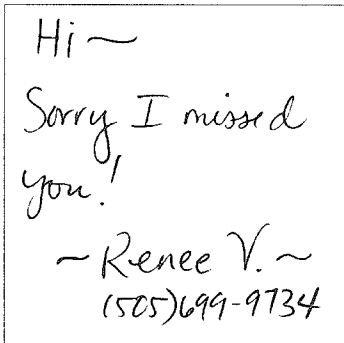 Hi ~
Sorry I missed
you!
~ Renee V. ~
(505)699-9734